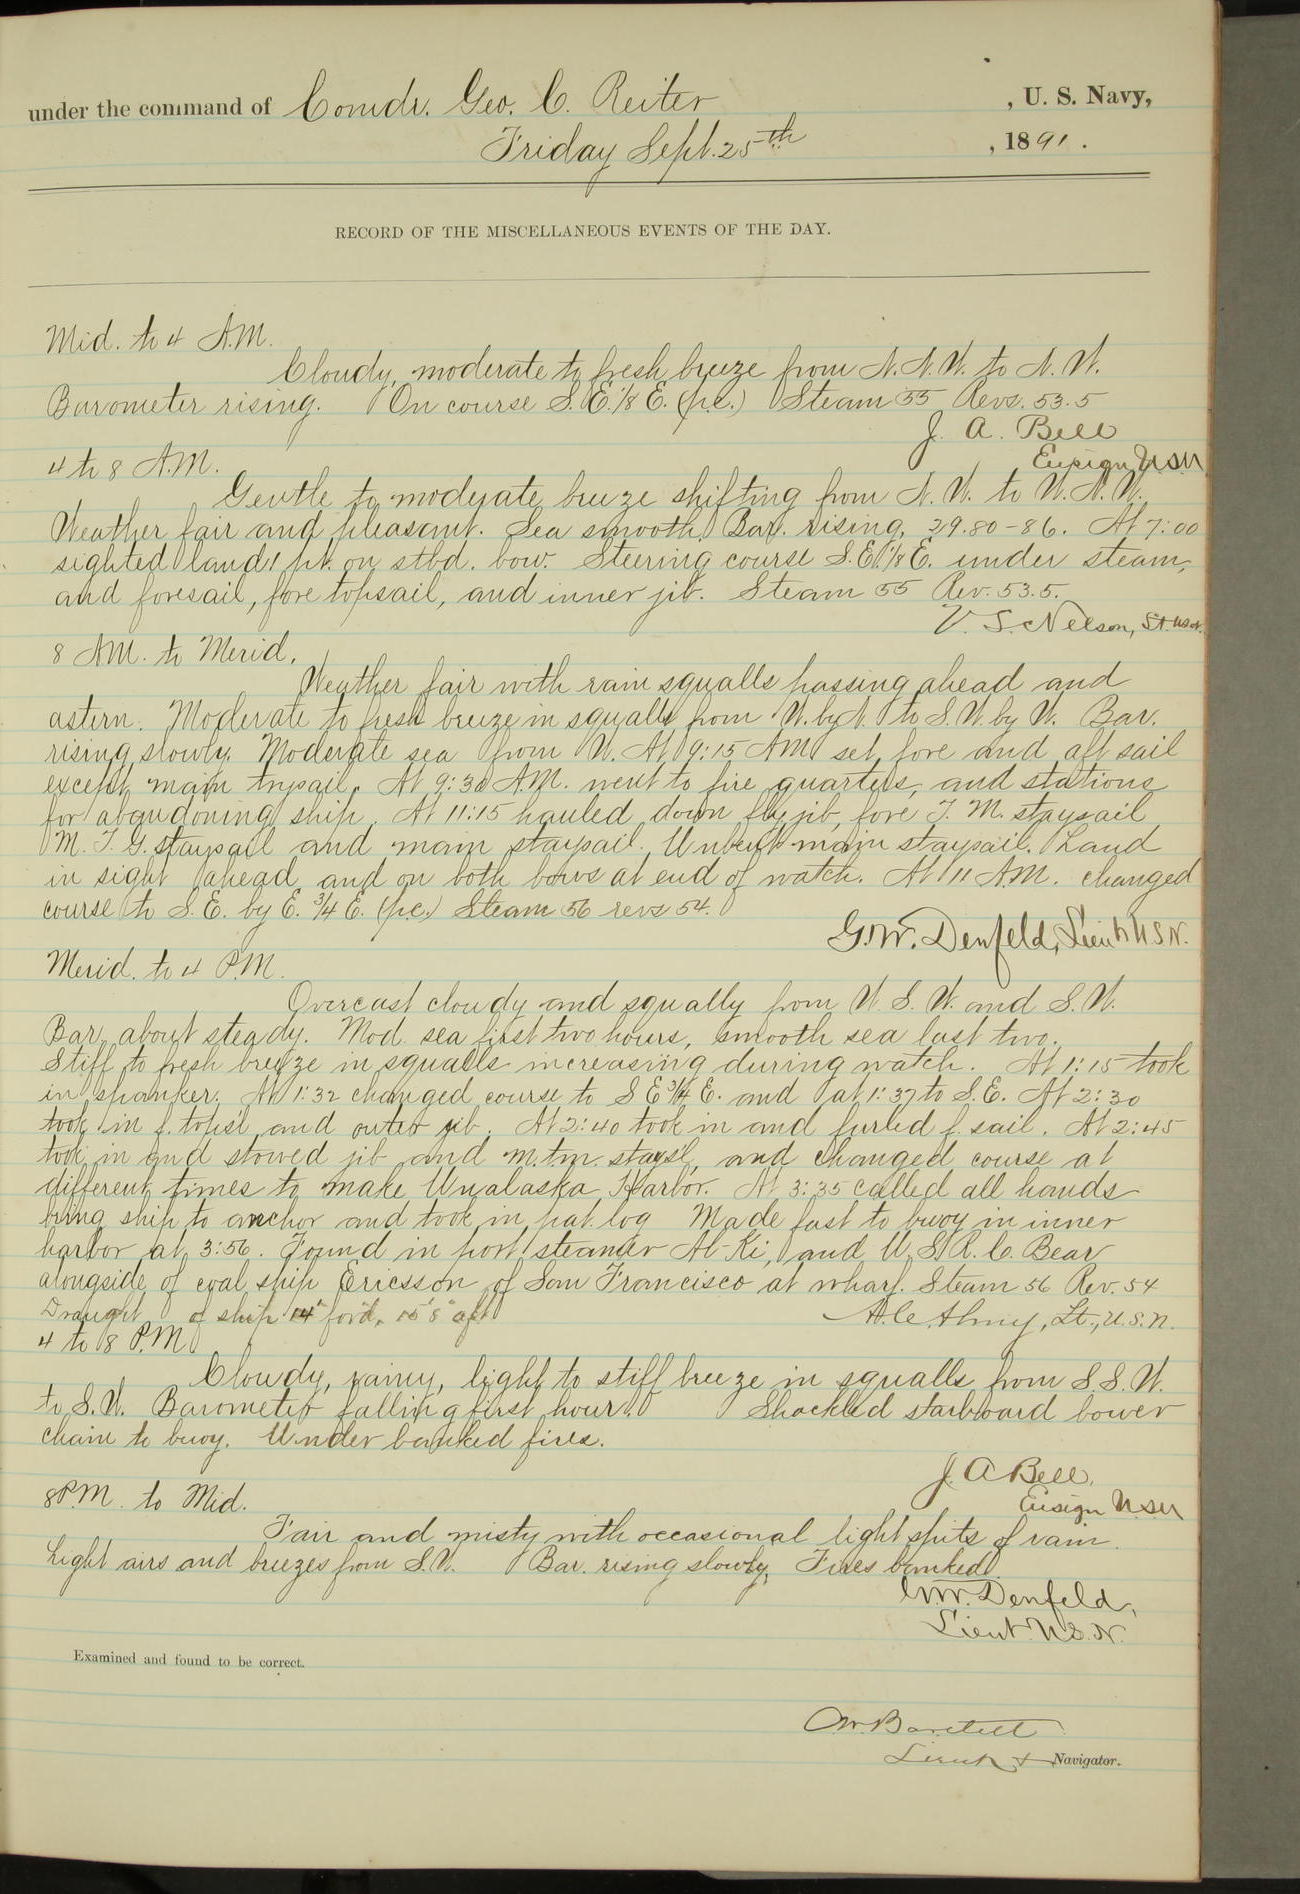 under the command of Comdr. Geo. C. Reiter , U. S. Navy,
Friday Sept. 25th , 1891 .
RECORD OF THE MISCELLANEOUS EVENTS OF THE DAY.
Mid. to 4 A.M.
Cloudy, moderate to fresh breeze from N.N.W. to N.W.
Barometer rising. On course S.E. 1/8 E. (p.c.) Steam 55 Revs. 53.5
J. A. Bell
Ensign USN
4 to 8 A.M.
Gentle to moderate breeze shifting from N.W. to W.N.W.
Weather fair and pleasant. Sea smooth Bar. rising, 29.80-86. At 7:00
sighted land 1 pt. on stbd. bow. Steering course S.E. 1/8 E. under steam,
and foresail, fore topsail, and inner jib. Steam 55 Rev. 53.5.
V. S. Nelson, Lt. USN.
8 AM. to Merid.
Weather fair with rain squalls passing ahead and
astern. Moderate to fresh breeze in squalls from W. by N. to S.W. by W. Bar.
rising slowly. Moderate sea from W. At 9:15 AM set fore and aft sail
except main trysail. At 9:30 A.M. went to fire quarters, and stations
for abandoning ship. At 11:15 hauled down fly jib, fore T. M. staysail
M. T. G. staysail and main staysail. Unbent main staysail. Land
in sight ahead and on both bows at end of watch. At 11 A.M. changed
course to S.E. by E. 3/4 E. (p.c.) Steam 56 revs 54.
G.W. Denfeld, Lieut USN.
Merid. to 4 P.M.
Overcast cloudy and squally from W.S.W. and S.W.
Bar. about steady. Mod. sea first two hours, smooth sea last two.
Stiff to fresh breeze in squalls increasing during watch. At 1:15 took
in spanker. At 1:32 changed course to S E 3/4 E. and at 1:37 to S.E. At 2:30
took in f. topsl and outer jib. At 2:40 took in and furled f. sail. At 2:45
took in and stowed jib and m.t.m. staysl, and changed course at
different times to make Unalaska Harbor. At 3:35 called all hands
bring ship to anchor and took in pat. log Made fast to buoy in inner
harbor at 3:56. Found in port steamer Al-Ki, and U.S.R.C. Bear
alongside of coal ship Ericsson of San Francisco at wharf. Steam 56 Rev. 54
Draught of ship 14' for'd, 15' 8" aft
, Lt., U.S.N.
4 to 8 P.M
Cloudy, rainy, light to stiff breeze in squalls from S.S.W.
to S.W. Barometer falling first hour. Shackled starboard bower
chain to buoy. Under banked fires.
J. A Bell,
Ensign USN
8 P.M. to Mid.
Fair and misty with occasional light spits of rain.
Light airs and breezes from S.W. Bar. rising slowly. Fires banked.
G.W. Denfeld,
Lieut. U.S.N.
Examined and found to be correct.
Lieut + Navigator.